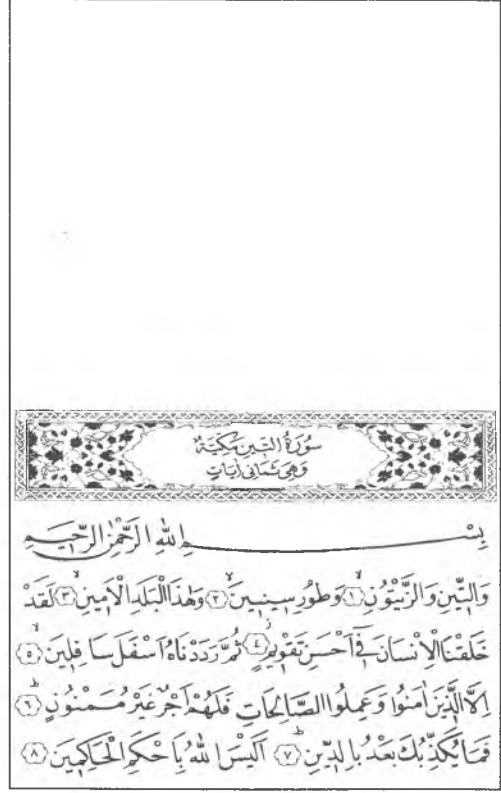 سُورَةُ التّينِ مَكِّيَّةٌ
وَهِيَ ثَمَانِي اٰيَاتٍ
بِسْمِ اللهِ الرَّحْمٰنِ الرَّحٖيمِ
وَالتّٖينِ وَالزَّيْتُونِۙ ﴿١﴾ وَطُورِ سٖينٖينَۙ ﴿٢﴾ وَهٰذَا الْبَلَدِ الْاَمٖينِۙ ﴿٣﴾ لَقَدْ
خَلَقْنَا الْاِنْسَانَ فٖٓي اَحْسَنِ تَقْوٖيمٍؗ ﴿٤﴾ ثُمَّ رَدَدْنَاهُ اَسْفَلَ سَافِلٖينَۙ ﴿٥﴾
اِلَّا الَّذٖينَ اٰمَنُوا وَعَمِلُوا الصَّالِحَاتِ فَلَهُمْ اَجْرٌ غَيْرُ مَمْنُونٍؕ ﴿٦﴾
فَمَا يُكَذِّبُكَ بَعْدُ بِالدّٖينِؕ ﴿٧﴾ اَلَيْسَ اللهُ بِاَحْكَمِ الْحَاكِمٖينَ ﴿٨﴾